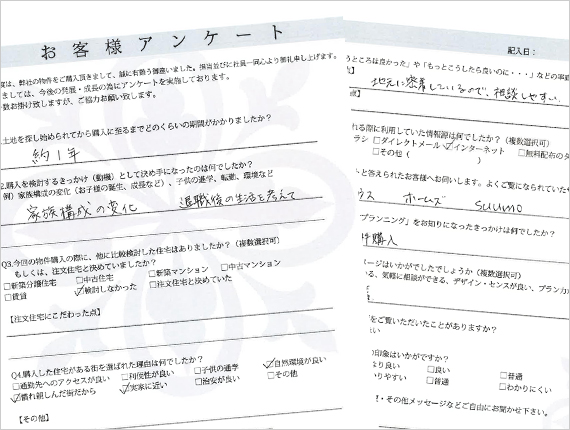 お客様アンケート
度は、弊社の物件をご購入頂きまして、誠に有難う御座いました。担当並びに社員一同心より御礼申し上げます。
ましては、今後の発展・成長の為にアンケートを実施しております。
数お掛け致しますが、ご協力お願い致します。
土地を探し始められてから購入に至るまでどのくらいの期間がかかりましたか?
約1年
2.購入を検討するきっかけ(動機)として決め手になったのは何でしたか?
例)家族構成の変化(お子様の誕生、成長など)、子供の進学、転勤、環境など
家族構成の変化 退職後の生活を考えて
Q3.今回の物件購入の際に、他に比較検討した住宅はありましたか?(複数選択可)
もしくは、注文住宅と決めていましたか?
□新築分譲住宅 □中古住宅 □新築マンション □中古マンション
□賃貸 ☑検討しなかった □注文住宅と決めていた
【注文住宅にこだわった点】
Q4.購入した住宅がある街を選ばれた理由は何でしたか?
□通勤先へのアクセスが良い □利便性が良い □子供の通学 ☑自然環境が良い
☑慣れ親しんだ街だから ☑実家に近い □治安が良い □その他
【その他】
記入日:
うところは良かった」や「もっとこうしたら良いのに・・・」などの事
地元に密着しているので、相談しやすい。
点】
れる際に利用していた情報源は何でしたか?(複数選択可)
ラシ □ダイレクトメール ☑インターネット □無料配布の
□その他( )
と答えられたお客様へお伺いします。よくご覧になられていた
ホームズ SUUMO
プランニング」をお知りになったきっかけは何でしたか?
購入
ージはいかがでしたでしょうか(複数選択可)
る、気軽に相談ができる、デザイン・センスが良い、プラン力
をご覧いただいたことがありますか?
い
印象はいかがですか?
より良い □良い □普通
りやすい □普通 □わかりにくい
!・その他メッセージなどご自由にお聞かせ下さい。